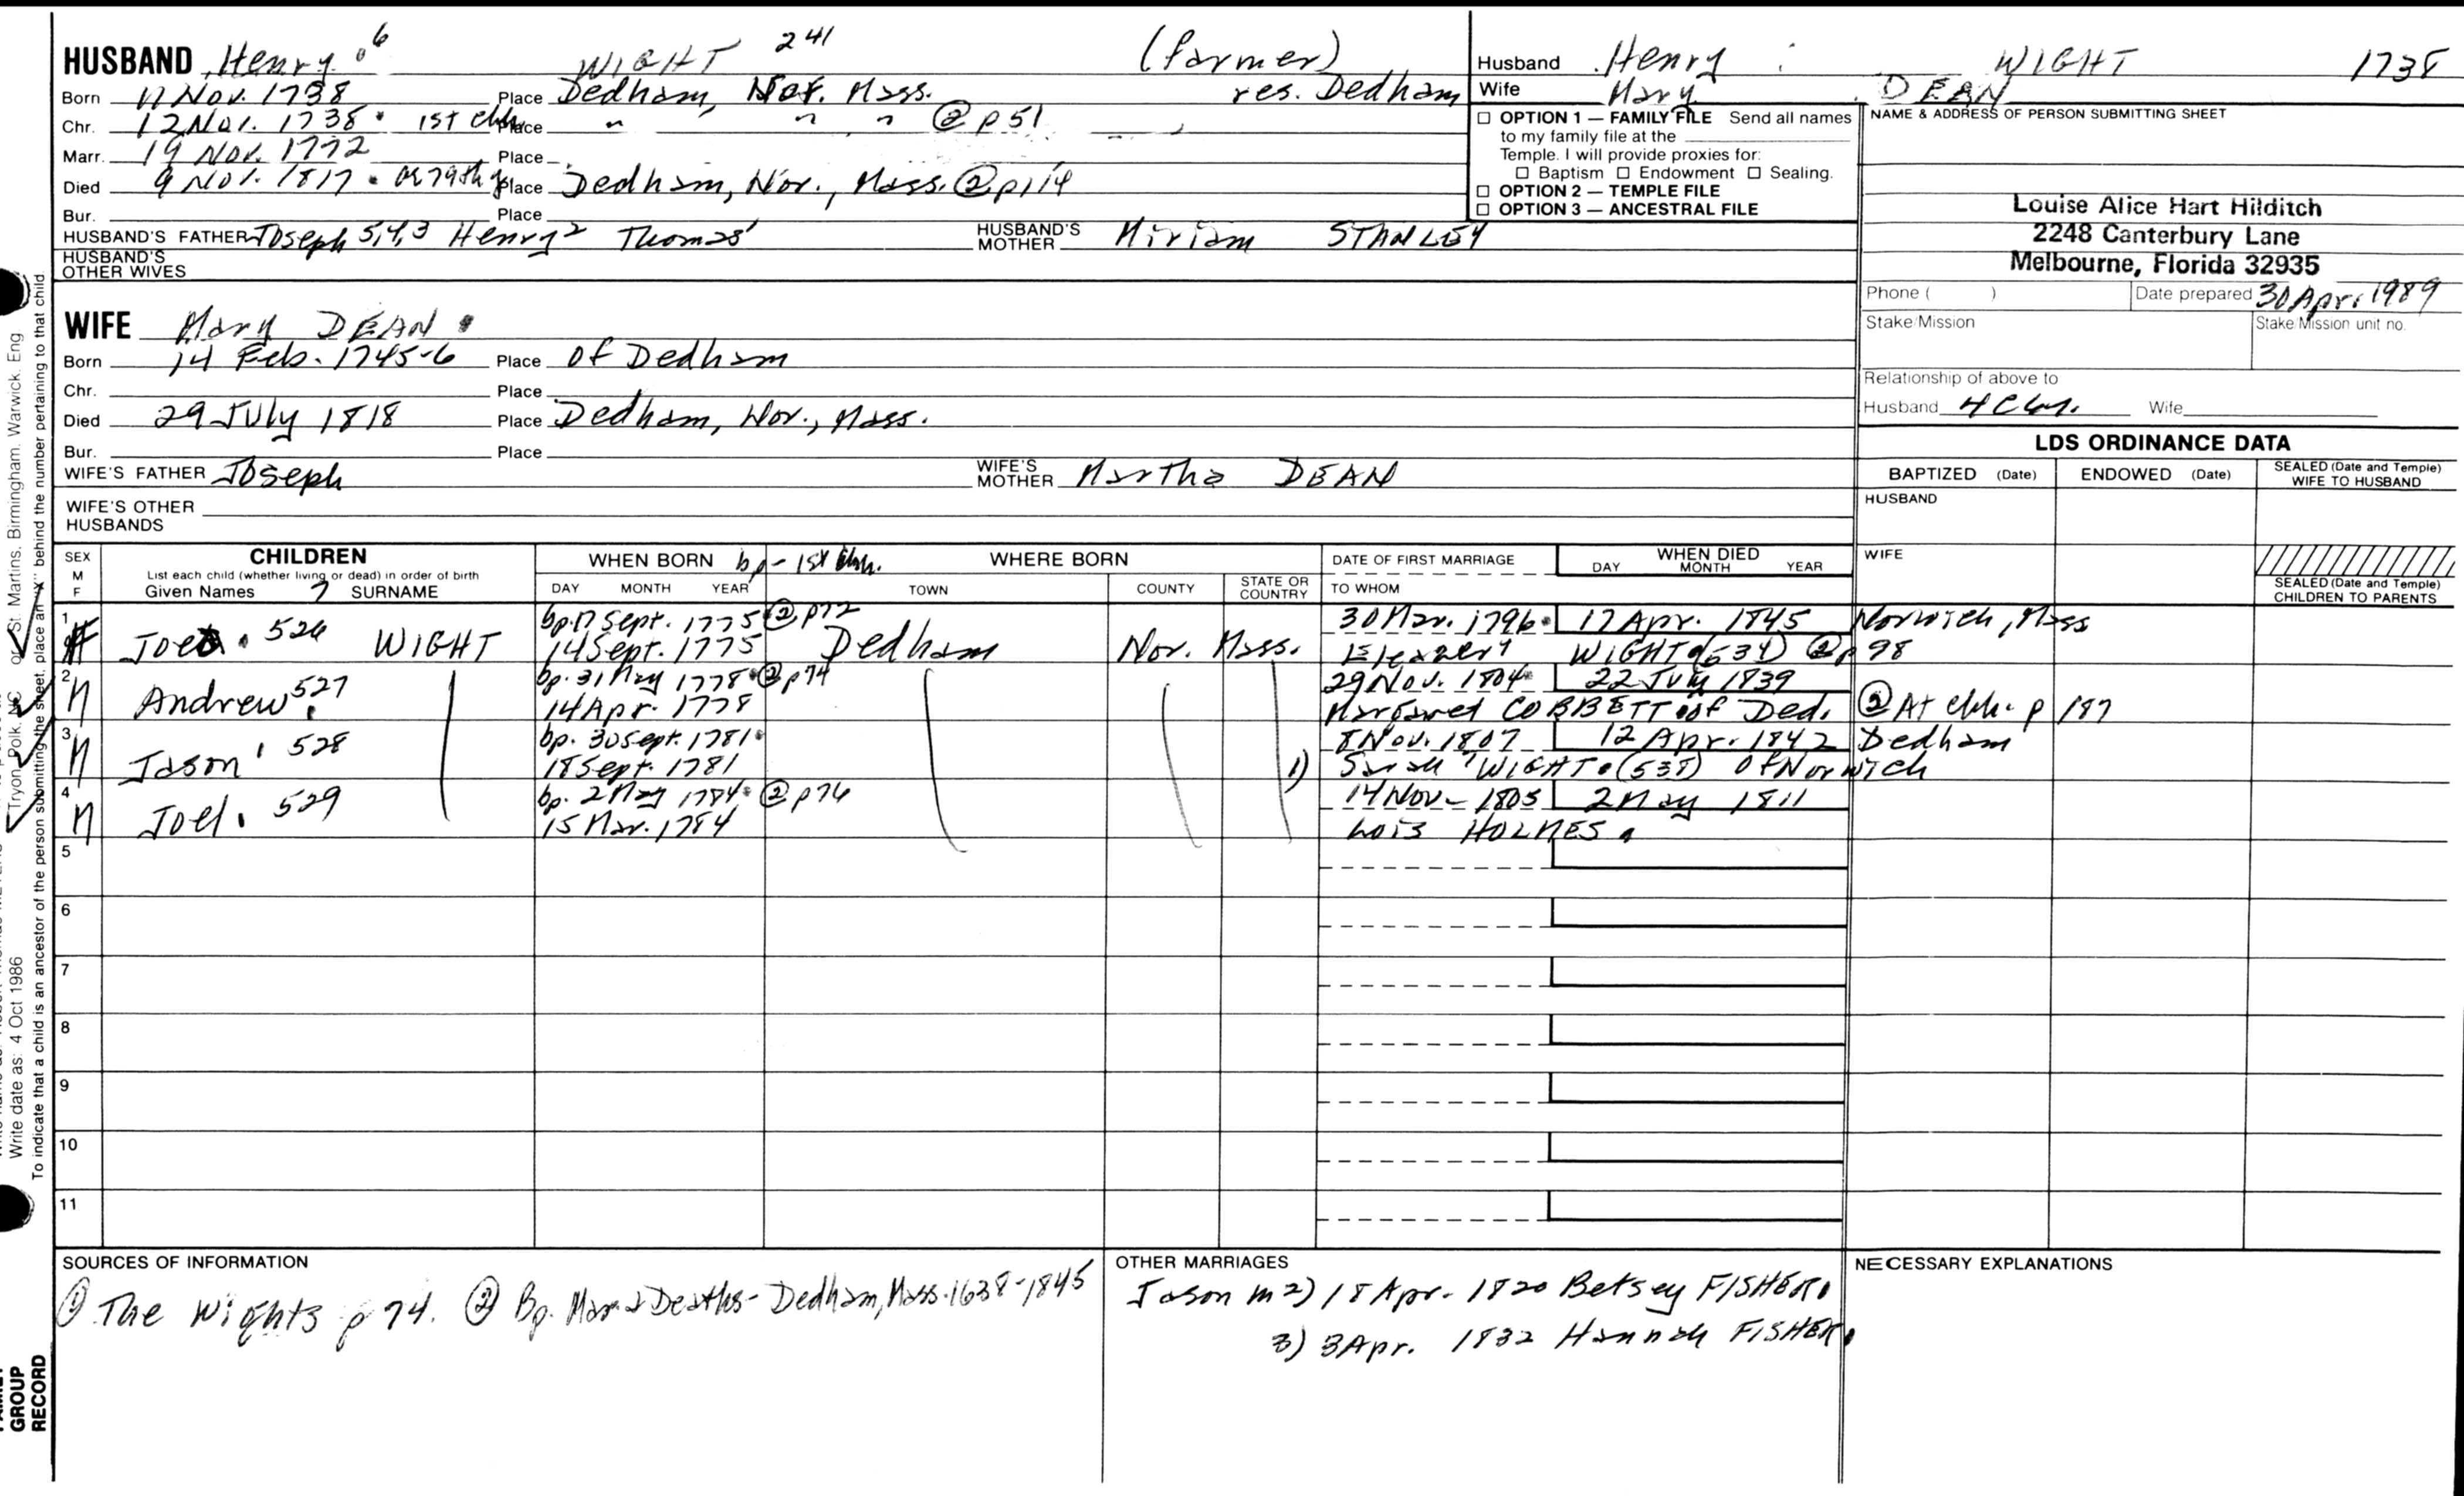 HUSBAND Henry 6 WIGHT 241 (farmer)
Born 11 Nov. 1738 Place Dedham, Nor. Mass. res. Dedham
Chr. 12 Nov. 1738 1st chh. Place " " " @ p 51
Marr. 19 Nov. 1772 Place
Died 9 Nov. 1817 Place Dedham, Nor., Mass. @ p 114
Bur. Place
HUSBAND'S FATHER Joseph 5,4,3 Henry 2 Thomas 1 HUSBAND'S MOTHER Miriam STANLEY
HUSBAND'S OTHER WIVES
WIFE Mary DEAN
Born 14 Feb. 1745-6 Place of Dedham
Chr. Place
Died 29 July 1818 Place Dedham, Nor., Mass.
Bur. Place
WIFE'S FATHER Joseph WIFE'S MOTHER Martha DEAN
WIFE'S OTHER HUSBANDS
Husband Henry WIGHT 1738
Wife Mary DEAN
□ OPTION 1 — FAMILY FILE Send all names
to my family file at the
Temple. I will provide proxies for:
□ Baptism □ Endowment □ Sealing.
□ OPTION 2 — TEMPLE FILE
□ OPTION 3 — ANCESTRAL FILE
NAME & ADDRESS OF PERSON SUBMITTING SHEET
Louise Alice Hart Hilditch
2248 Canterbury Lane
Melbourne, Florida 32935
Phone ( ) Date prepared 30 Apr. 1989
Stake/Mission Stake/Mission unit no.
Relationship of above to
Husband Wife
LDS ORDINANCE DATA
BAPTIZED (Date) ENDOWED (Date) SEALED (Date and Temple) WIFE TO HUSBAND
HUSBAND
WIFE
SEALED (Date and Temple)
CHILDREN TO PARENTS
SEX M F
CHILDREN
List each child (whether living or dead) in order of birth
Given Names SURNAME
WHEN BORN bp - 1st chh. WHERE BORN
DAY MONTH YEAR TOWN COUNTY STATE OR COUNTRY
DATE OF FIRST MARRIAGE
TO WHOM
WHEN DIED
DAY MONTH YEAR
1 bp. 17 Sept. 1775 @ p72 30 Mar. 1796 17 Apr. 1845 Norwich, Mass
526 WIGHT 14 Sept. 1775 Dedham Nor. Mass. Eleazer WIGHT (534) @ p 98
2 bp. 31 May 1778 @ p74 29 Nov. 1804 22 July 1839
M Andrew 527 14 Apr. 1778 Margaret COBBETT of Ded. @ At chh. p 187
3 bp. 30 Sept. 1781 8 Nov. 1807 12 Apr. 1842 Dedham
M Jason 528 18 Sept. 1781 1) Sarah WIGHT (538) of Norwich
4 bp. 2 May 1784 @ p76 14 Nov. 1805 2 May 1811
M Joel 529 15 Mar. 1784 Lois HOLMES
5
6
7
8
9
10
11
SOURCES OF INFORMATION
① The Wights p 74. ② Bp. Mar & Deaths - Dedham, Mass. 1638-1845
OTHER MARRIAGES
Jason m 2) 18 Apr. 1820 Betsey FISHER
3) 3 Apr. 1832 Hannah FISHER
NECESSARY EXPLANATIONS
To indicate that a child is an ancestor of the person submitting the sheet, place an "X" behind the number pertaining to that child
Write date as: 4 Oct 1986
Tryon, Polk, NC or St. Martins, Birmingham, Warwick, Eng
GROUP
RECORD